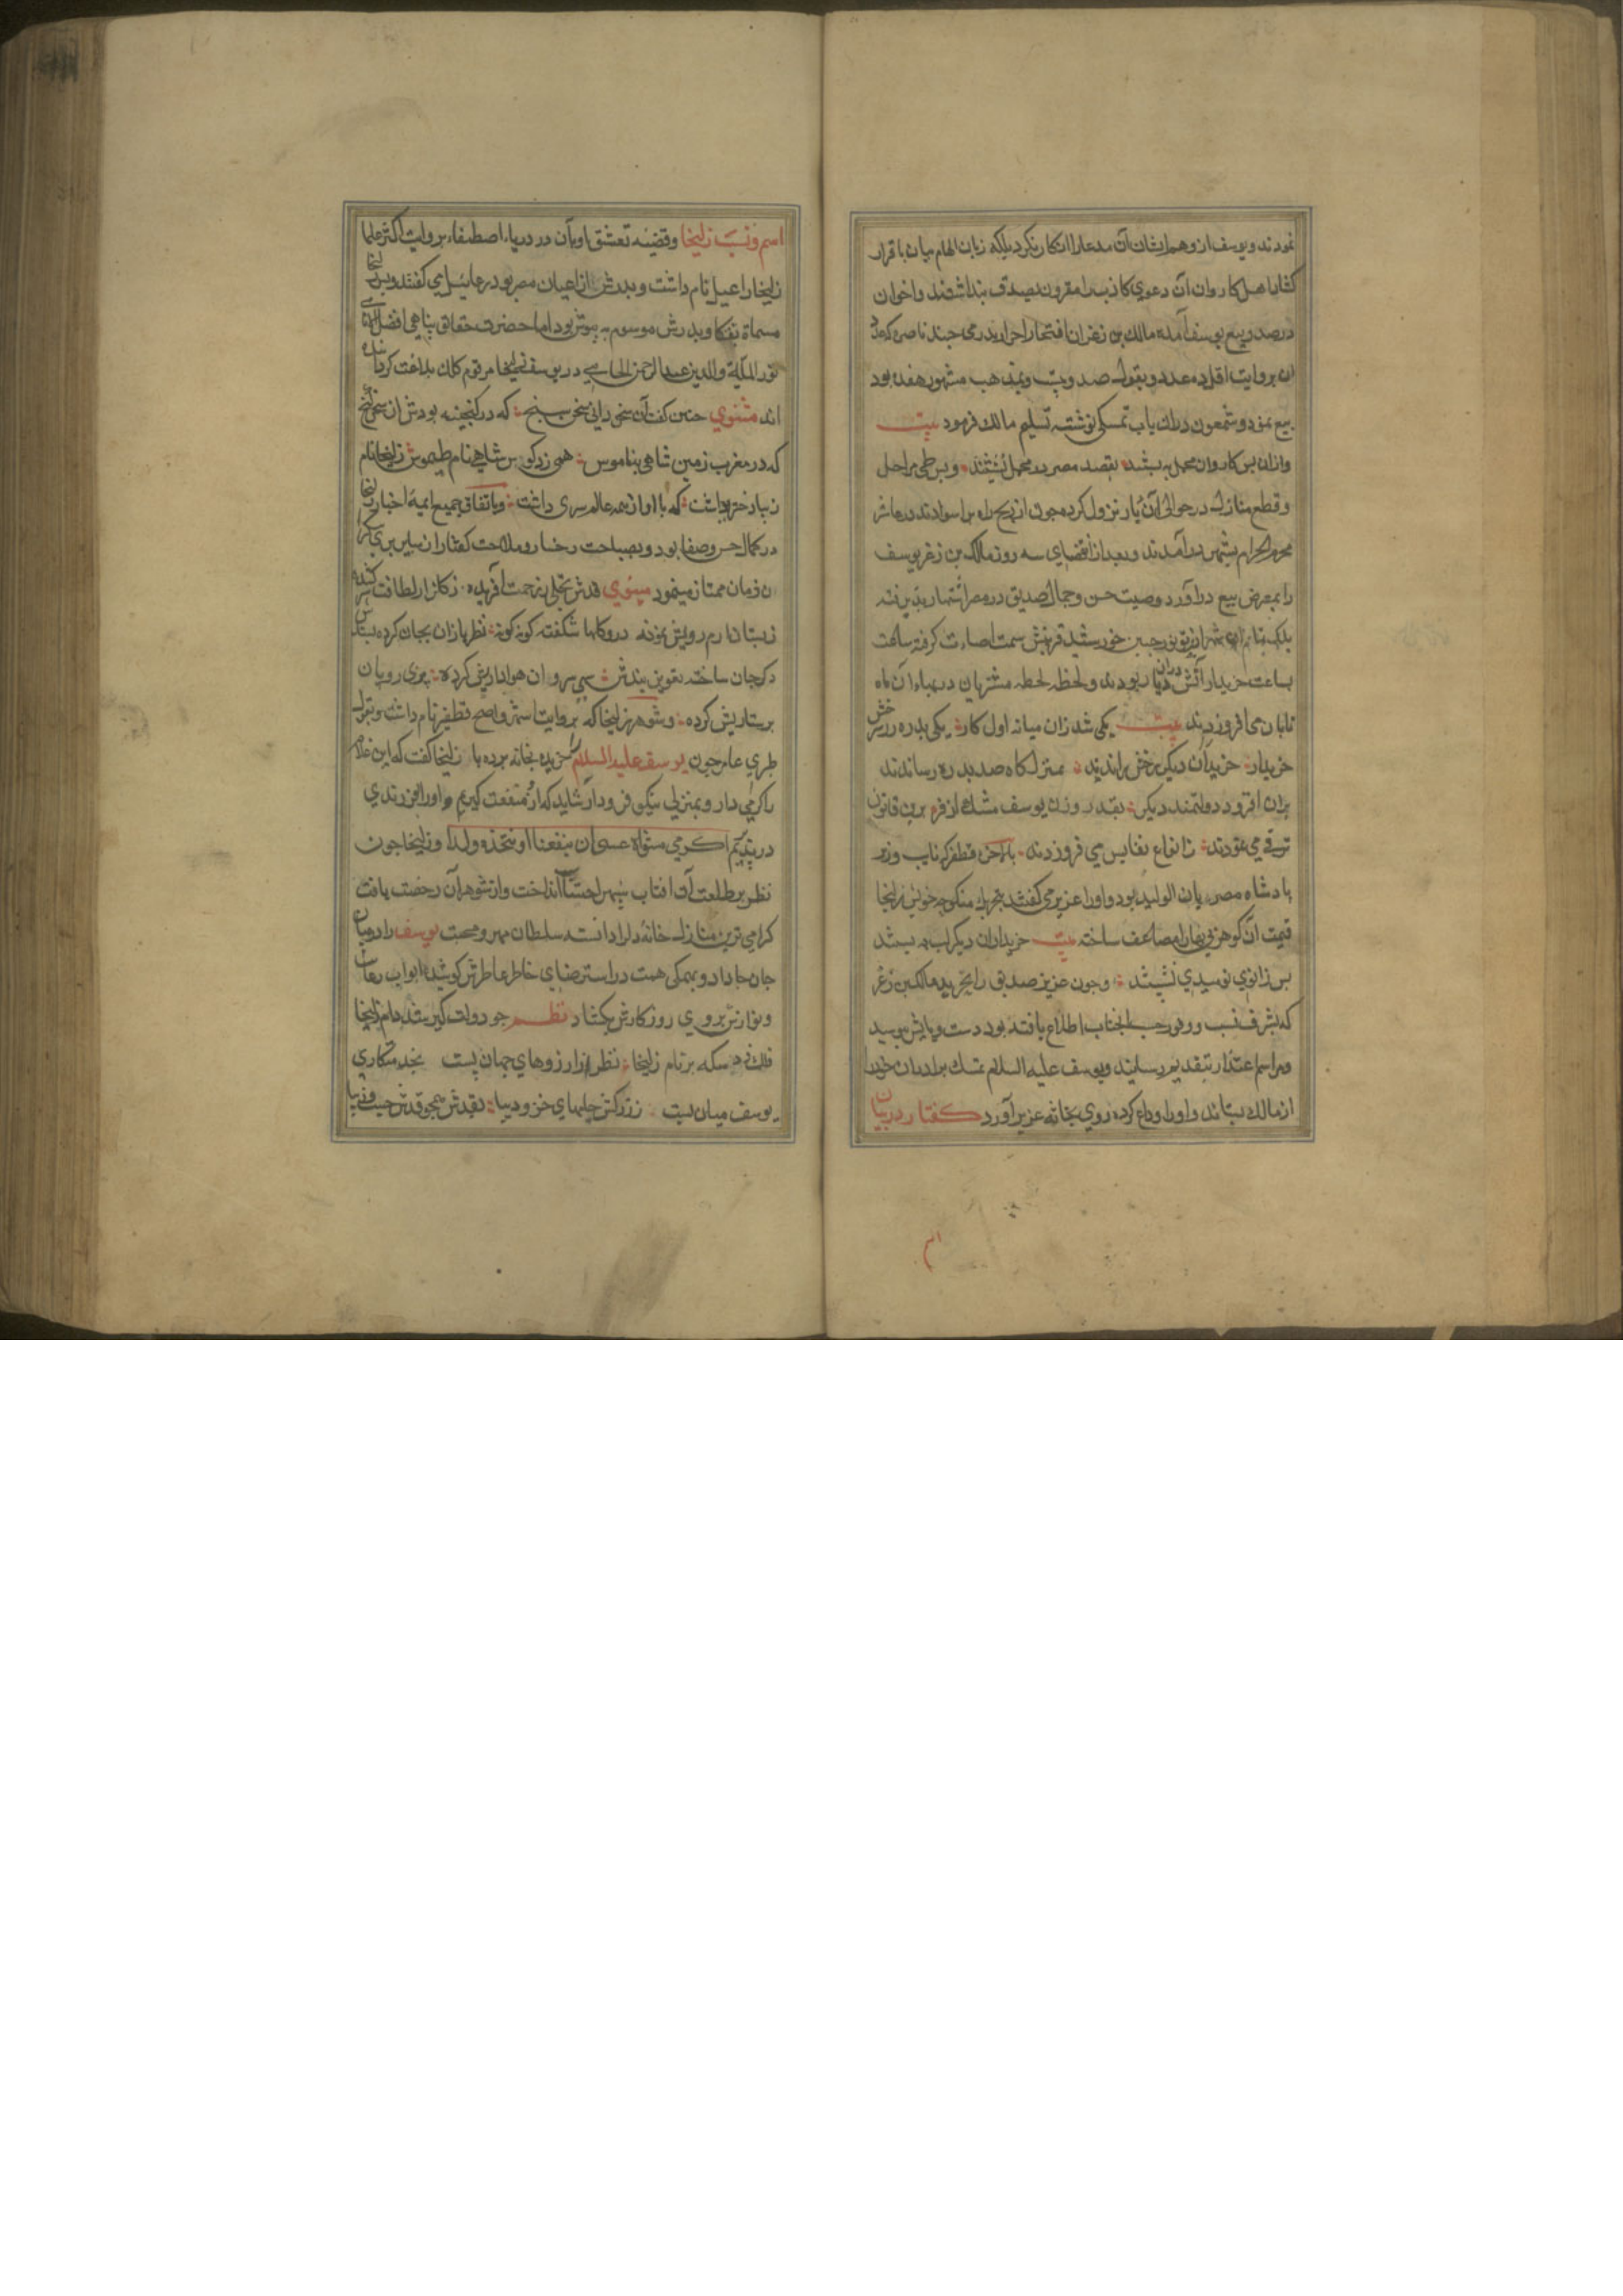 نمودند و یوسف از وهم ایشان آن مدعا را انکار نکرد بلکه زبان الهام بیان باقرار
کشاد اهل کاروان آن دعوی کاذبه را مقرون بصدق پنداشتند و اخوان
درصدد بیع یوسف آمده مالک بن زعر ان افتخار احرار بدرمی چند ناصره که عدد
ان بروایت اقل ده عدد و بقول صد و بیست و بمذهب مشهور هفده بود
بیع نمود و شمعون دران باب تمسکی نوشته تسلیم مالک فرمود بیت
وازان پس کاروان محمل به بستند بقصد مصر در محمل نشستند و پس طی مراحل
و قطع منازل در حوالی آن دیار نزول کرده چون از رنج راه بر اسودند در عاشر
محرم الحرام بشهر در آمدند و بعد از انقضای سه روز مالک بن زعر یوسف
را بمعرض بیع در آورد وصیت حسن و جمال صدیق در مصر اشتهار پذیرفته
ساعت
بساعت خریدار آتش دران دیار بودند و لحظه لحظه مشتریان در بهاء آن ماه
تابان می افزودند بیت یکی شد زان میانه اول کار یکی بدره زرش
خریدار خریداران دیکر رخش راندند بمنزلکاه صد بدره رساندند
بران افزود دولتمند دیکر بقدر وزن یوسف مشک ازفر برین قانون
ترقی می نمودند ز انواع نفایس می فزودند بالاخره قطفیر که نایب وزیر
پادشاه مصر ریان الولید بود و اورا عزیز می کفتند بتحریک منکوحه خویش زلیخا
قیمت آن کوهر بی بها را مضاعف ساخته بیت خریداران دیکر لب به بستند
پس زانوی نومیدی نشستند و چون عزیز صدیق را بخرید مالک بن زعر
که بشرف نسب و وفور حسب انجناب اطلاع یافته بود دست و پایش بوسید
و مراسم اعتذار بتقدیم رسانید و یوسف علیه السلام تمسک برادران خود را
از مالک بستاند و اورا وداع کرده روی بخانه عزیز آورد کفتار در بیان
اسم و نسب زلیخا و قضیه تعشق او بآن در دریاء اصطفاء بروایت اکثر علما
زلیخا راعیل نام داشت و پدرش از اعیان مصر بود رعائیل می کفتند و
مسماة و پدرش موسوم به بود اما حضرت حقایق پناهی افضل
نور الملة والدین عبد الرحمن الجامی در یوسف زلیخا مرقوم کلک بلاغت کردانیده
اند مثنوی چنین کفت آن سخن دان سخن سنج که در کنجینه بودش از سخن کنج
که در مغرب زمین شاهی بناموس همی زد کوس شاهی نام طیموس زلیخا نام
زیبا دختری داشت که با او از همه عالم سری داشت و باتفاق جمیع ایمه اخبار زلیخا
در کمال حسن و صفا بود و بصباحت رخسار و ملاحت کفتار از سایر
ن زمان ممتاز مینمود مثنوی قدش نخلی ز رحمت آفریده ز کلزار لطافت سر کشیده
ز بستان ارم رویش نمونه درو کلها شکفته کونه کونه
بیندش سهی سروان هواداریش کرده پری رویان
پرستاریش کرده و شوهر زلیخا که بروایت اشهر و اصح قطفیر نام داشت و بقول
طبری عامر چون یوسف علیه السلام را خریده بخانه برده با زلیخا کفت که این غلام
را کرامی دار و بمنزلی نیکو فرود آر شاید که از منفعت کیریم و اورا بفرزندی
در پذیریم اکرمی مثواه عسی ان ینفعنا او نتخذه ولدا و زلیخا چون
نظر بر طلعت آن افتاب سپهر انداخت و از شوهر آن رخصت یافت
کرامی ترین منازل خانه دل را دانسته سلطان مهر و محبت یوسف را در میان
جان جا داد و بهمکی همت در استرضای خاطر عاطرش کوشید ابواب رعایت
و نوازش بروی روزکارش بکشاد نظم چو دولت کیر شد دام زلیخا
فلک زد سکه بر نام زلیخا نظر از ارزوهای جهان بست بخدمتکاری
یوسف میان بست زرکش حلهای خز و دیبا بقدش همچو قدش چست و زیبا